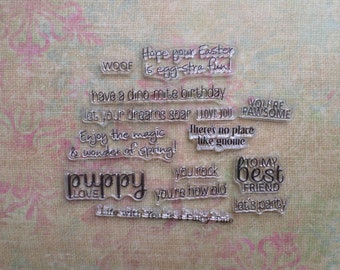 WOOF
Hope your Easter
is egg-stra fun!
have a dino-mite birthday
let your dreams soar
I LOVE YOU
YOU'RE
PAWSOME
Enjoy the magic
& wonder of spring!
There's no place
like gnome
puppy
LOVE
you rock
you're how old
TO MY
best
FRIEND
let's party
Life with you is a fairy